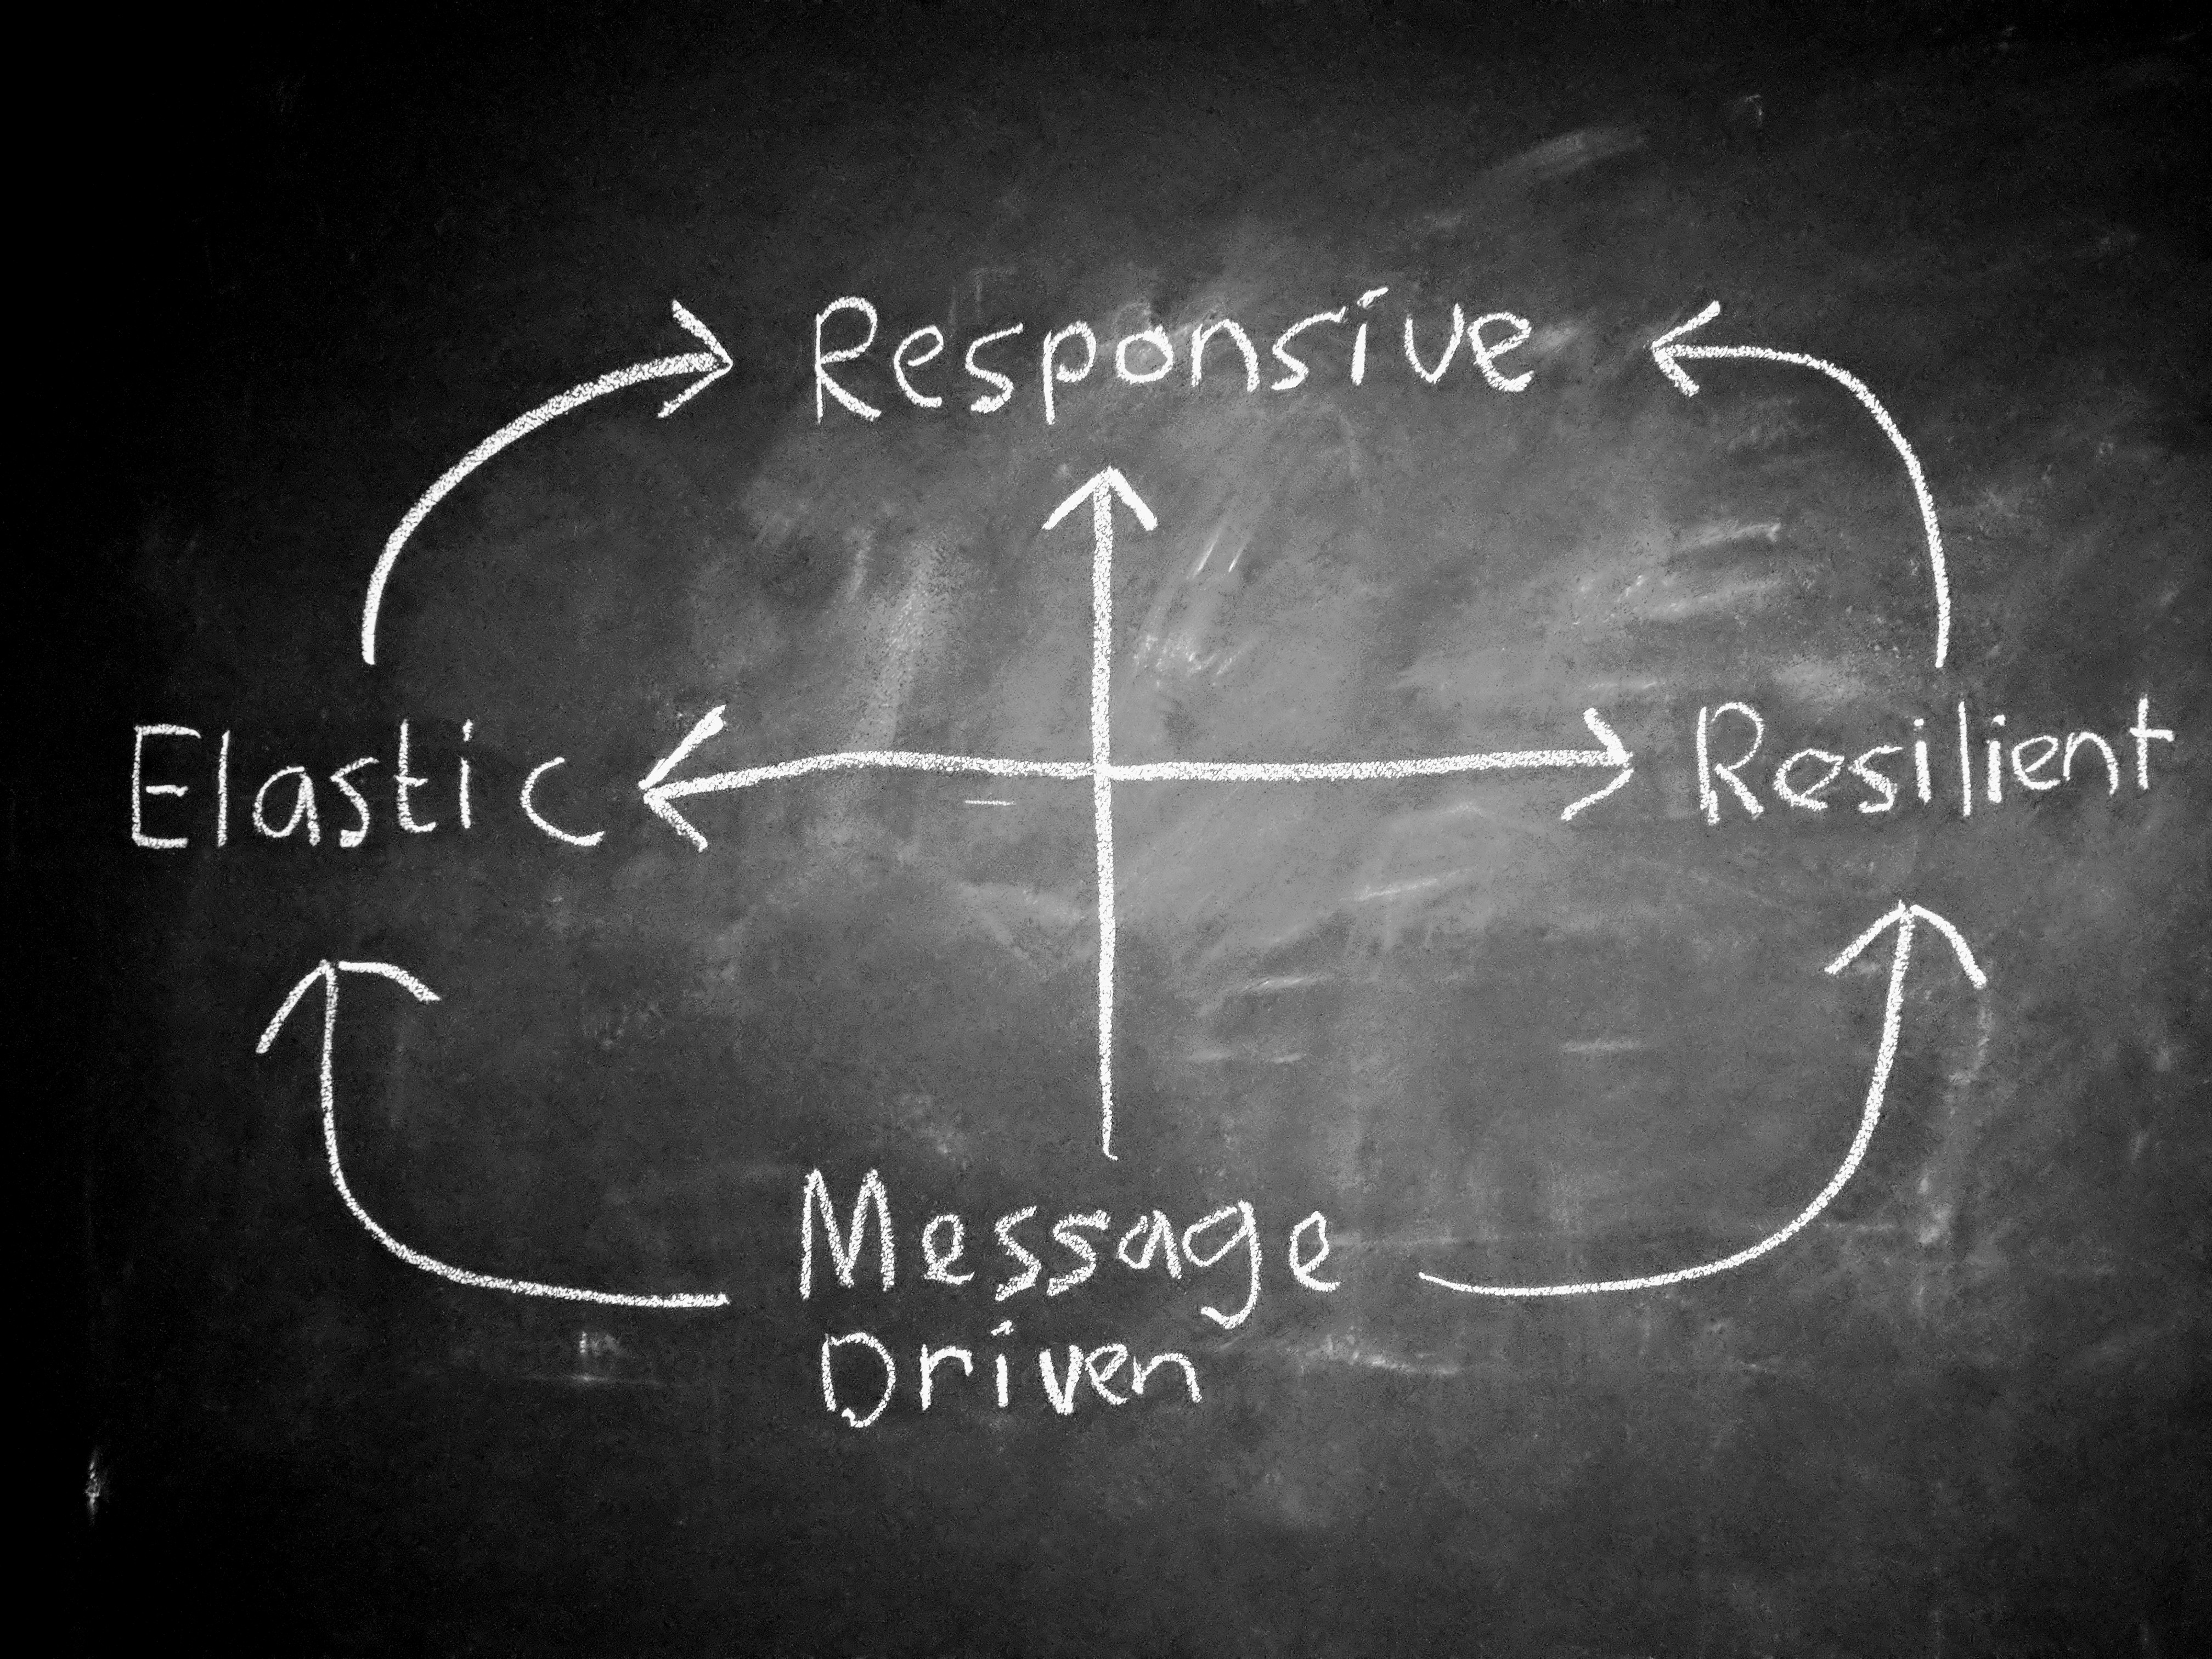 Responsive
Elastic
Resilient
Message
Driven